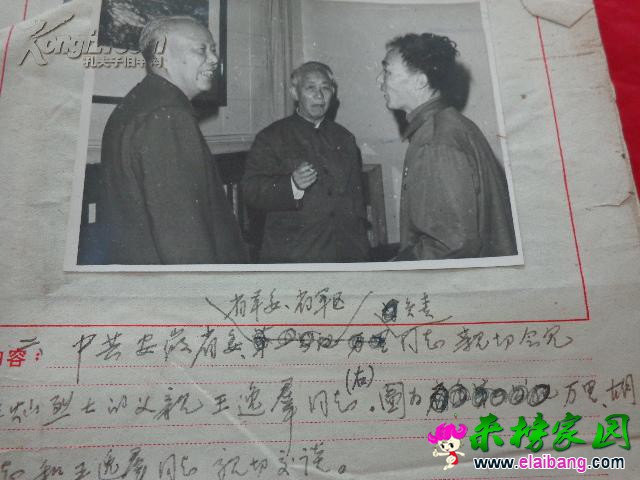 Kongfz.com
孔夫子旧书网
省革委、省军区 负责
二、中共安徽省委 同志亲切会见
内容：
烈士的父亲王逸群同志(右)。图为 万里、胡
和王逸群同志亲切交谈。
来榜家园
www.elaibang.com